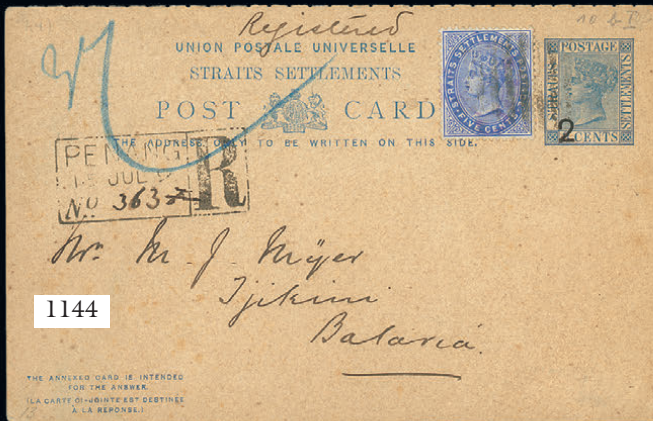 Registered
UNION POSTALE UNIVERSELLE
STRAITS SETTLEMENTS
POST CARD
THE ADDRESS ONLY TO BE WRITTEN ON THIS SIDE.
STRAITS SETTLEMENTS
FIVE CENTS
POSTAGE
SETTLEMENTS
2
CENTS
PENANG
JUL
R
No. 363
Mr. M J Meyer
Tjikini
Batavia.
1144
THE ANNEXED CARD IS INTENDED
FOR THE ANSWER.
(LA CARTE CI-JOINTE EST DESTINÉE
À LA RÉPONSE.)